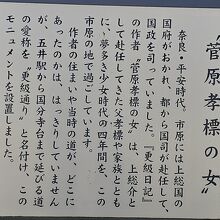 "菅原孝標の女"
奈良・平安時代、市原には上総国の
国府がおかれ、都から国司が赴任して
国政を司っていました。『更級日記』
の作者〝菅原孝標の女〟は、上総介と
して赴任してきた父孝標や家族ととも
に、夢多き少女時代の四年間を、この
市原の地で過ごしています。
作者の住まいや当時の道が、どこに
あったのかは、はっきりしていません
が、五井駅から国分寺台まで延びる道
の愛称を〝更級通り〟と名付け、この
モニュメントを設置しました。